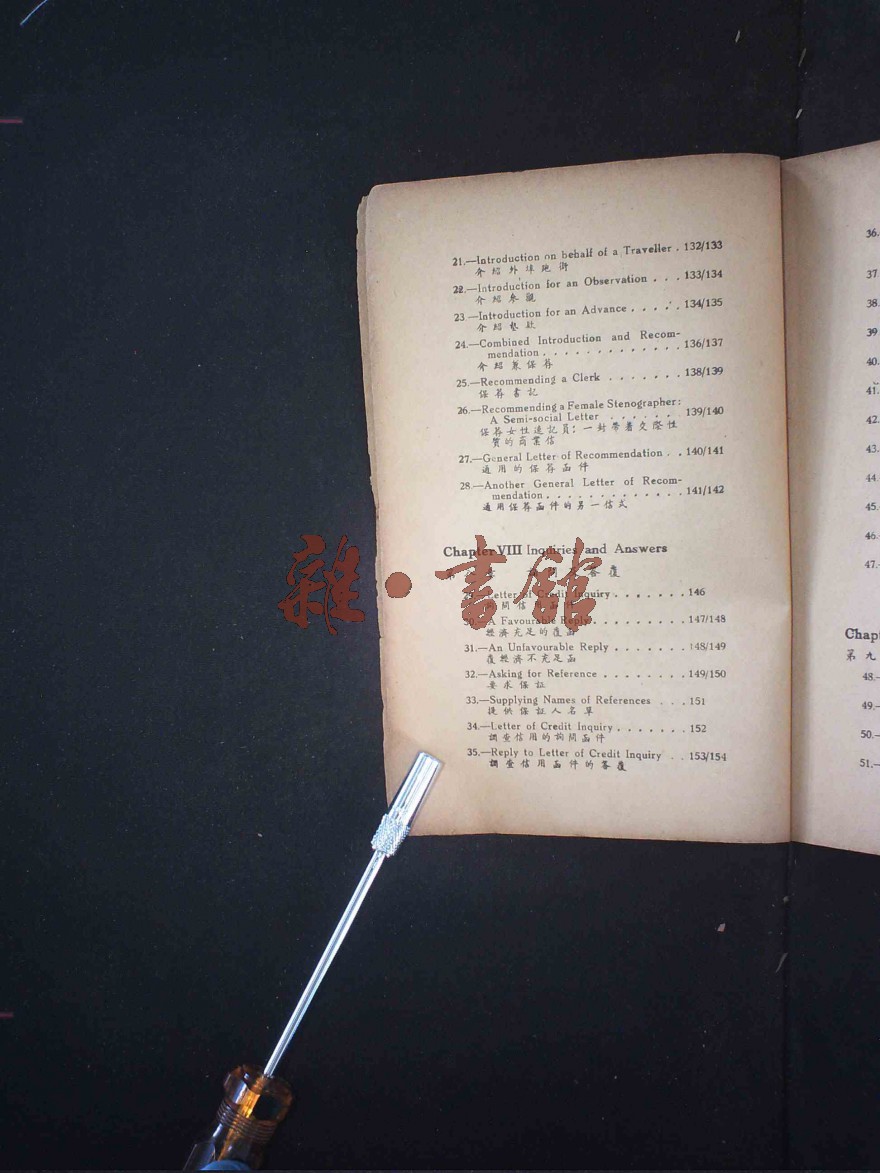 21.—Introduction on behalf of a Traveller . 132/133
介紹外埠跑街
22.—Introduction for an Observation . . . 133/134
介紹參觀
23 —Introduction for an Advance . . . . . 134/135
介紹墊款
24.—Combined Introduction and Recom-
mendation . . . . . . . . . . . . . 136/137
介紹兼保荐
25.—Recommending a Clerk . . . . . . . 138/139
保荐書記
26.—Recommending a Female Stenographer:
A Semi-social Letter . . . . . . 139/140
保荐女性速記員：一封帶着交際性
質的商業信
27.—General Letter of Recommendation . . 140/141
通用的保荐函件
28.—Another General Letter of Recom-
mendation . . . . . . . . . . . . . 141/142
通用保荐函件的另一信式
Chapter VIII Inquiries and Answers
第 答覆
Letter of Credit Inquiry . . . . . . . 146
問信 函件
30.—A Favourable Reply . . . . . . . . . 147/148
經濟充足的覆函
31.—An Unfavourable Reply . . . . . . . 148/149
覆經濟不充足函
32.—Asking for Reference . . . . . . . . 149/150
要求保証
33.—Supplying Names of References . . . 151
提供保証人名單
34.—Letter of Credit Inquiry . . . . . . . 152
調查信用的詢問函件
35.—Reply to Letter of Credit Inquiry . . 153/154
調查信用函件的答覆
雜·書館
36.
37.
38.
39
40.
41.
43.
44
45.
46.
47.
Chapt
第九
48.—
49.—
50.—
51.—